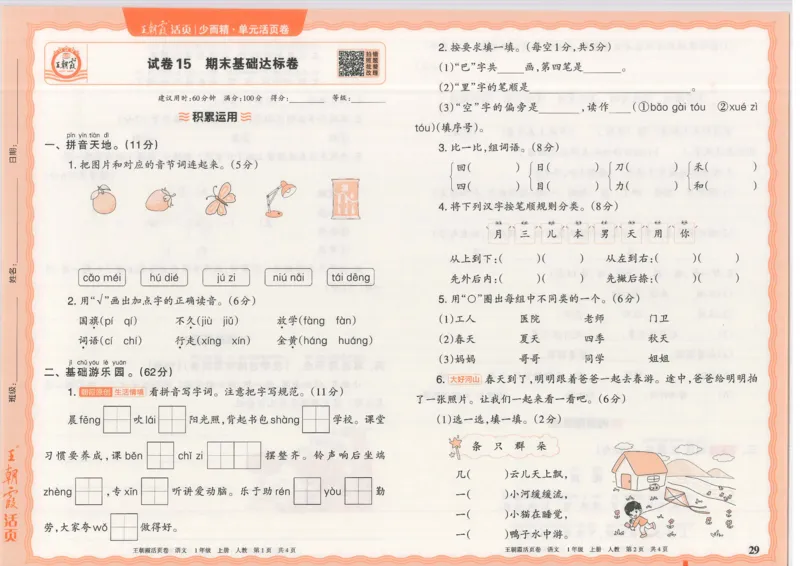 王朝霞活页|少而精·单元活页卷
王朝霞
试卷15 期末基础达标卷
建议用时:60分钟 满分:100分 得分:______ 等级:______
积累运用
pīn yīn tiān dì
一、拼音天地。(11分)
1.把图片和对应的音节词连起来。(5分)
cǎo méi hú dié jú zi niú nǎi tái dēng
2.用“√”画出加点字的正确读音。(6分)
国旗(pí qí) 不久(jiù jiǔ) 放学(fàng fàn)
词语(cí chí) 行走(xíng xín) 金黄(háng huáng)
jī chǔ yóu lè yuán
二、基础游乐园。(62分)
1. 生活情境 看拼音写字词。注意把字写规范。(11分)
晨fēng 吹lái 阳光照,背起书包shàng 学校。课堂
习惯要养成,课běn chǐ zi 摆整齐。铃声响后坐端
zhèng ,专xīn 听讲爱动脑。乐于助rén yòu 勤
劳,大家夸wǒ 做得好。
王朝霞活页卷 语文 1年级 上册 人教 第1页 共4页
2.按要求填一填。(每空1分,共5分)
(1)“巴”字共____画,第四笔是______。
(2)“里”字的笔顺是______________________。
(3)“空”字的偏旁是______,读作____(①bǎo gài tóu ②xué zì
tóu)(填序号)。
3.比一比,组词语。(8分)
回( ) 日( ) 刀( ) 禾( )
四( ) 目( ) 力( ) 和( )
4.将下列汉字按笔顺规则分类。(8分)
月 三 儿 本 男 天 用 你
从上到下:( )( ) 从左到右:( )( )
先外后内:( )( ) 先撇后捺:( )( )
5.用“○”圈出每组中不同类的一个。(6分)
(1)工人 医院 老师 门卫
(2)春天 夏天 四季 秋天
(3)妈妈 哥哥 同学 姐姐
6. 大好河山 春天到了,明明跟着爸爸一起去春游。途中,爸爸给明明拍
了一张照片。让我们一起来看一看吧。(6分)
(1)选一选,填一填。(2分)
条 只 群 朵
几( )云儿天上飘,
一( )小河缓缓流,
一( )小猫在睡觉,
一( )鸭子水中游。
王朝霞活页卷 语文 1年级 上册 人教 第2页 共4页
29
日期:
姓名:
班级:
王朝霞活页